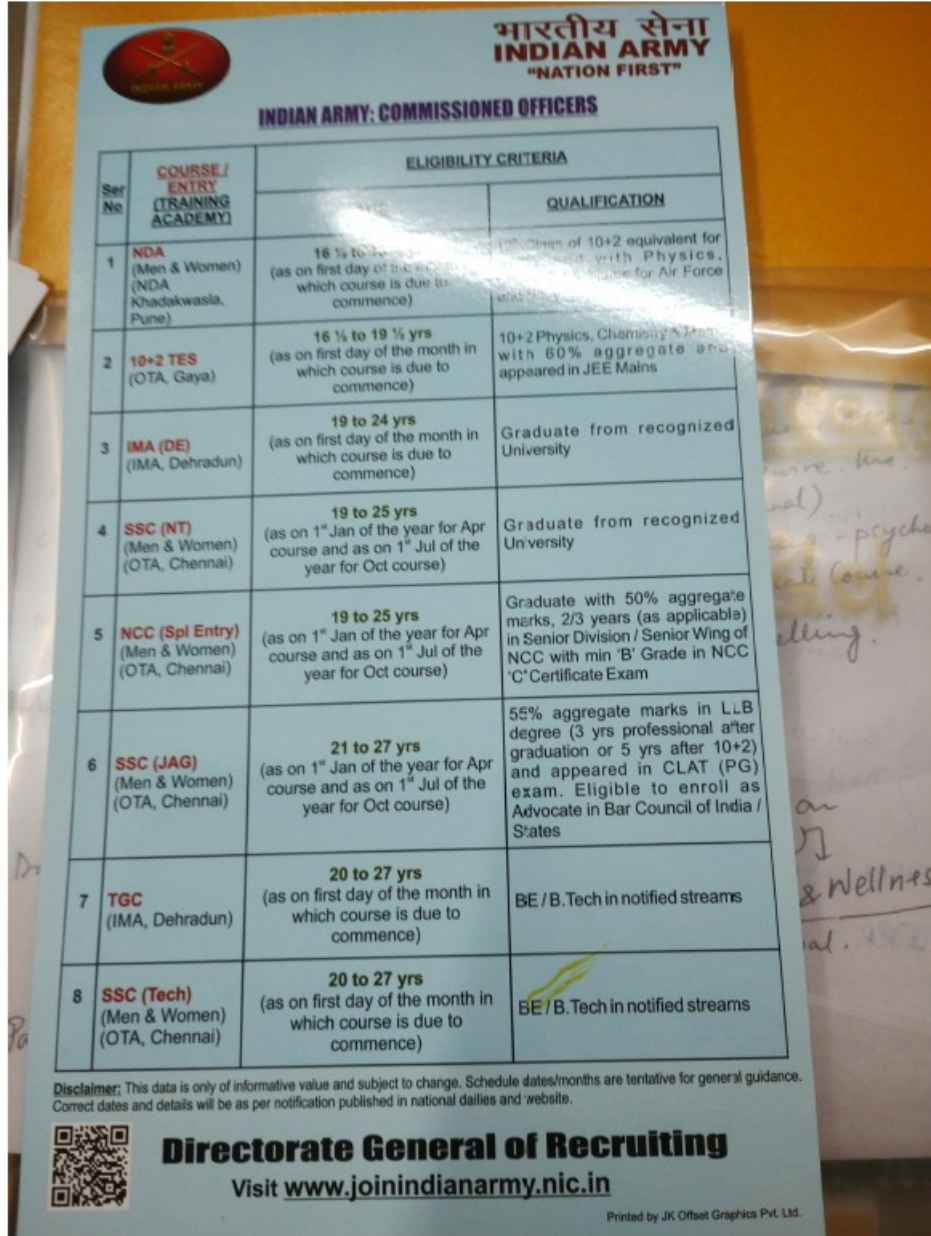 भारतीय सेना
INDIAN ARMY
"NATION FIRST"
INDIAN ARMY
INDIAN ARMY: COMMISSIONED OFFICERS
Ser
No
COURSE /
ENTRY
(TRAINING
ACADEMY)
ELIGIBILITY CRITERIA
QUALIFICATION
1
NDA
(Men & Women)
(NDA
Khadakwasla,
Pune)
16 ½ to
(as on first day of the
which course is due to
commence)
Class of 10+2 equivalent for
with Physics,
for Air Force
2
10+2 TES
(OTA, Gaya)
16 ½ to 19 ½ yrs
(as on first day of the month in
which course is due to
commence)
10+2 Physics, Chemistry &
with 60% aggregate and
appeared in JEE Mains
3
IMA (DE)
(IMA, Dehradun)
19 to 24 yrs
(as on first day of the month in
which course is due to
commence)
Graduate from recognized
University
4
SSC (NT)
(Men & Women)
(OTA, Chennai)
19 to 25 yrs
(as on 1st Jan of the year for Apr
course and as on 1st Jul of the
year for Oct course)
Graduate from recognized
University
5
NCC (Spl Entry)
(Men & Women)
(OTA, Chennai)
19 to 25 yrs
(as on 1st Jan of the year for Apr
course and as on 1st Jul of the
year for Oct course)
Graduate with 50% aggregate
marks, 2/3 years (as applicable)
in Senior Division / Senior Wing of
NCC with min 'B' Grade in NCC
'C' Certificate Exam
6
SSC (JAG)
(Men & Women)
(OTA, Chennai)
21 to 27 yrs
(as on 1st Jan of the year for Apr
course and as on 1st Jul of the
year for Oct course)
55% aggregate marks in LLB
degree (3 yrs professional after
graduation or 5 yrs after 10+2)
and appeared in CLAT (PG)
exam. Eligible to enroll as
Advocate in Bar Council of India /
States
7
TGC
(IMA, Dehradun)
20 to 27 yrs
(as on first day of the month in
which course is due to
commence)
BE / B.Tech in notified streams
8
SSC (Tech)
(Men & Women)
(OTA, Chennai)
20 to 27 yrs
(as on first day of the month in
which course is due to
commence)
BE / B.Tech in notified streams
Disclaimer: This data is only of informative value and subject to change. Schedule dates/months are tentative for general guidance.
Correct dates and details will be as per notification published in national dailies and website.
Directorate General of Recruiting
Visit www.joinindianarmy.nic.in
Printed by JK Offset Graphics Pvt. Ltd.
- psycho
Course.
& Wellness